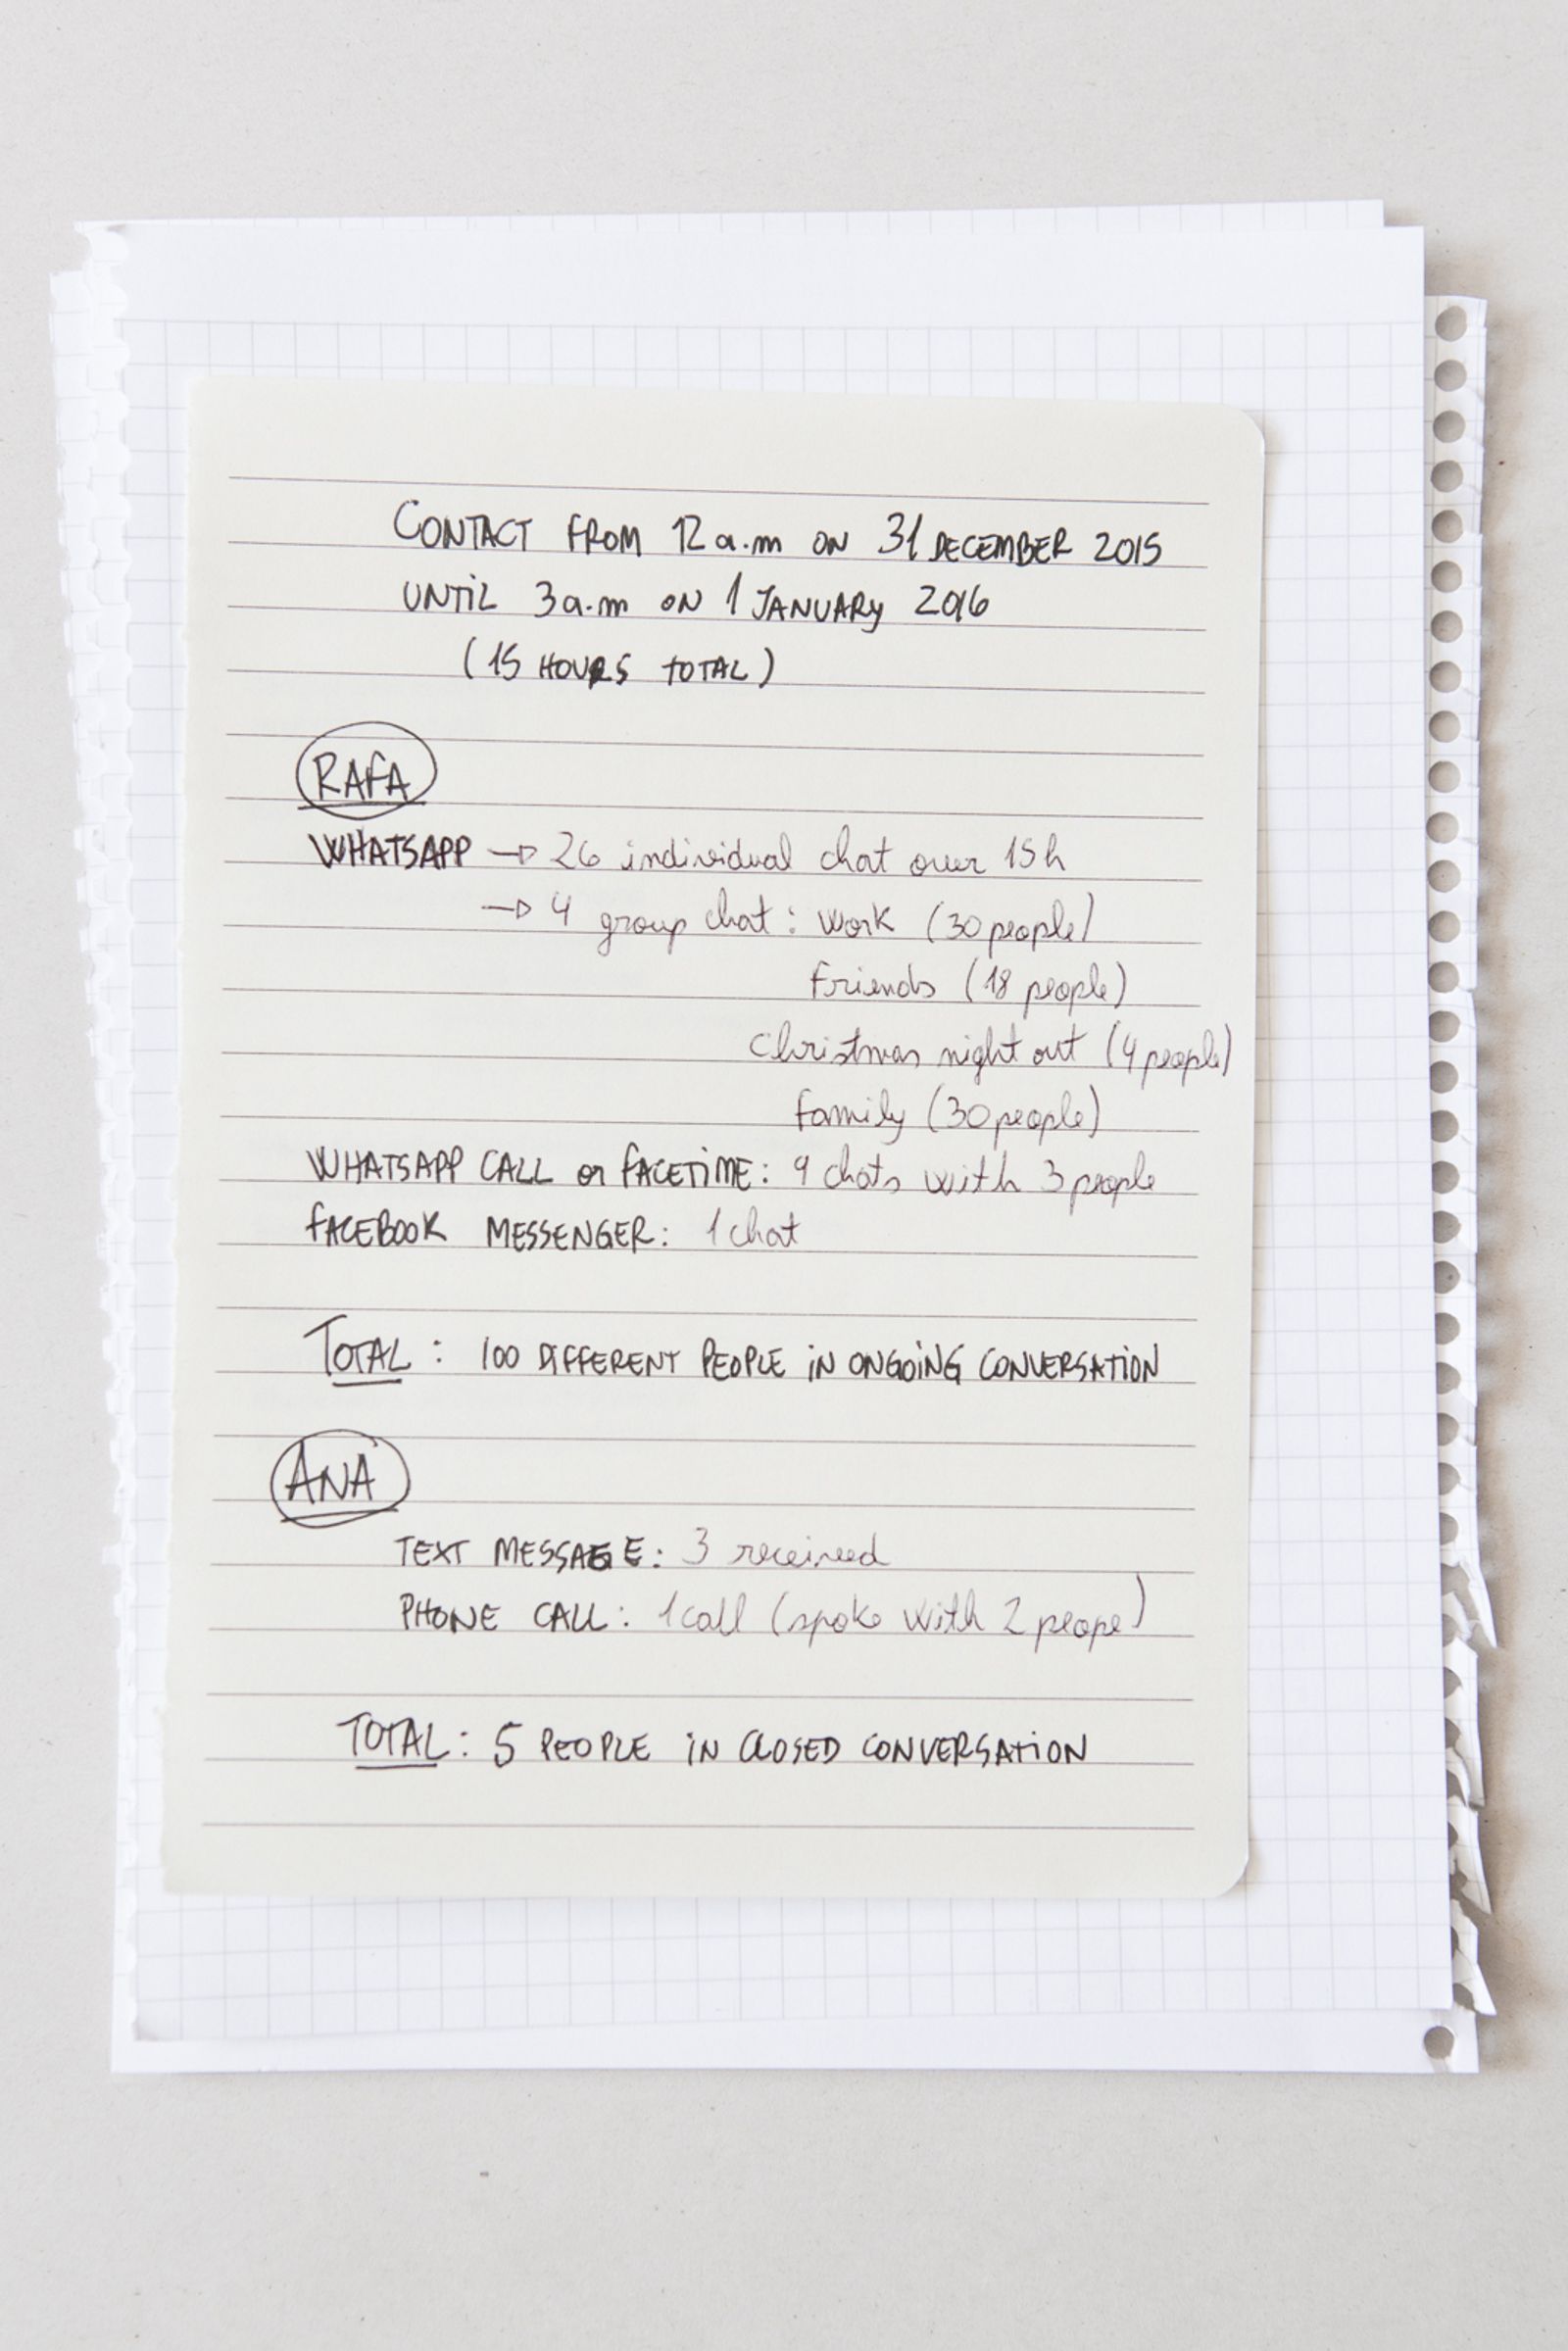 CONTACT FROM 12 a.m ON 31 DECEMBER 2015
UNTIL 3 a.m ON 1 JANUARY 2016
(15 HOURS TOTAL)
RAFA
WHATSAPP → 26 individual chat over 15h
→ 4 group chat: Work (30 people)
Friends (18 people)
Christmas night out (4 people)
Family (30 people)
WHATSAPP CALL or FACETIME: 9 chats with 3 people
FACEBOOK MESSENGER: 1 chat
TOTAL: 100 DIFFERENT PEOPLE IN ONGOING CONVERSATION
ANA
TEXT MESSAGE: 3 received
PHONE CALL: 1 call (spoke with 2 peope)
TOTAL: 5 PEOPLE IN CLOSED CONVERSATION